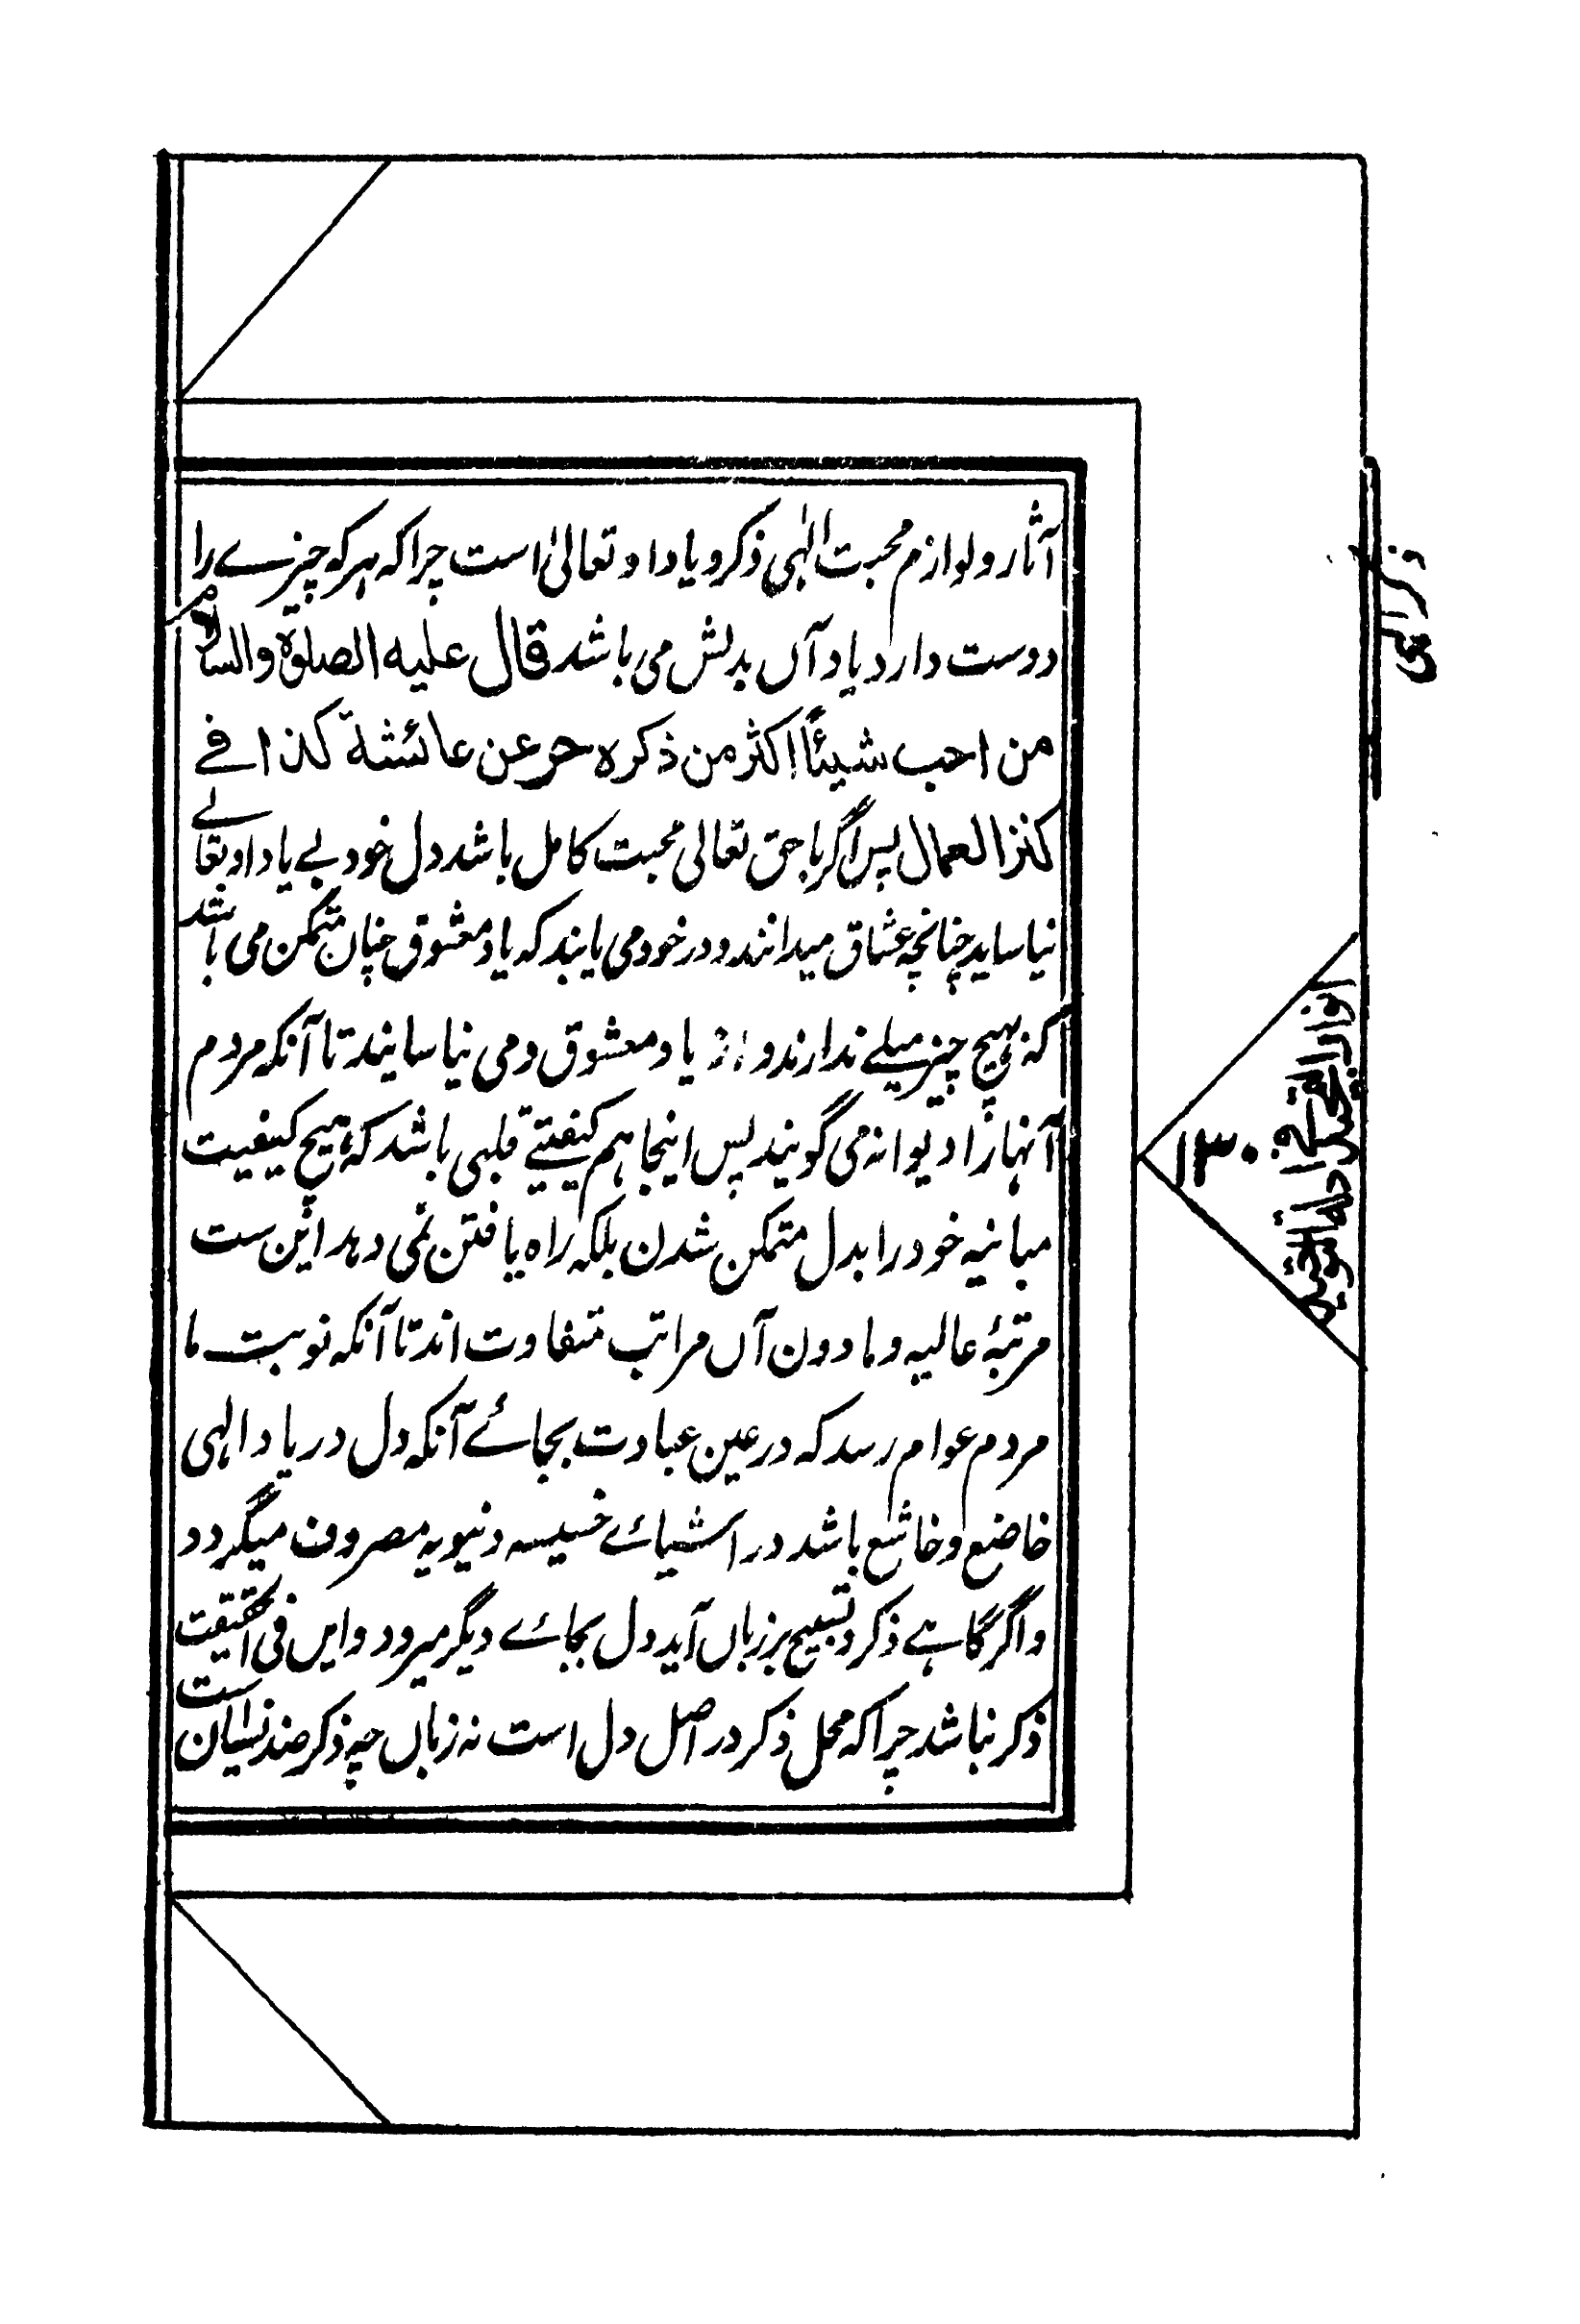 آثار و لوازم محبت الٰہی ذکر و یاد او تعالیٰ است چرا که ہر که چیزے را
دوست دارد یاد آں بدلش می باشد قال علیه الصلوٰة والسلام
من احب شیئاً اکثر من ذکره حر عن عائشة کذا فے
کنز العمال پس اگر با حق تعالی محبت کامل باشد دل خود بے یاد او تعالے
نیاساید چنانچہ عشاق میدانند و در خود می یابند که یاد معشوق چناں متمکن می باشد
که بہیچ چیز میلے ندارند و از یاد معشوق دمی نیاسایند تا آنکه مردم
آنہا را دیوانه می گویند پس اینجا ہم کیفیتے قلبی باشد که ہیچ کیفیت
مباینه خود را بدل متمکن شدن بلکه راه یافتن نمی دہد این ست
مرتبۂ عالیه و مادون آں مراتب متفاوت اند تا آنکه نوبت ما
مردم عوام رسد که در عین عبادت بجائے آنکه دل در یاد الہی
خاضع و خاشع باشد در اشیائے خسیسه دنیویه مصروف میگردد
و اگر گاہے ذکر و تسبیح بر زباں آید دل بجائے دیگر میرود و ایں فی الحقیقت
ذکر نباشد چرا که محل ذکر در اصل دل است نه زباں چه ذکر ضد نسیان ست
ذکر الٰہی
۱۳۰